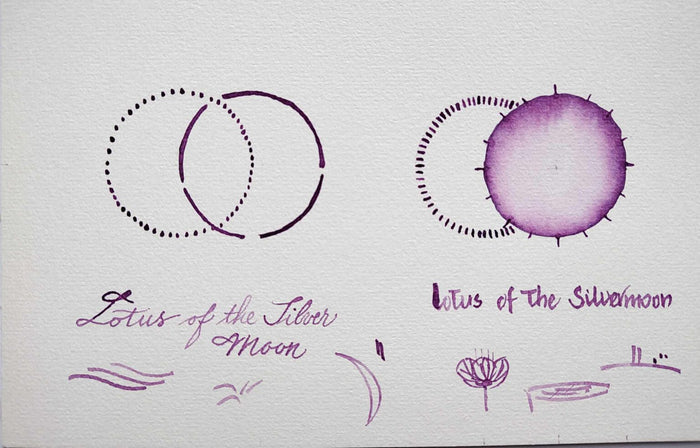 Lotus of the Silver
Moon
Lotus of The Silvermoon